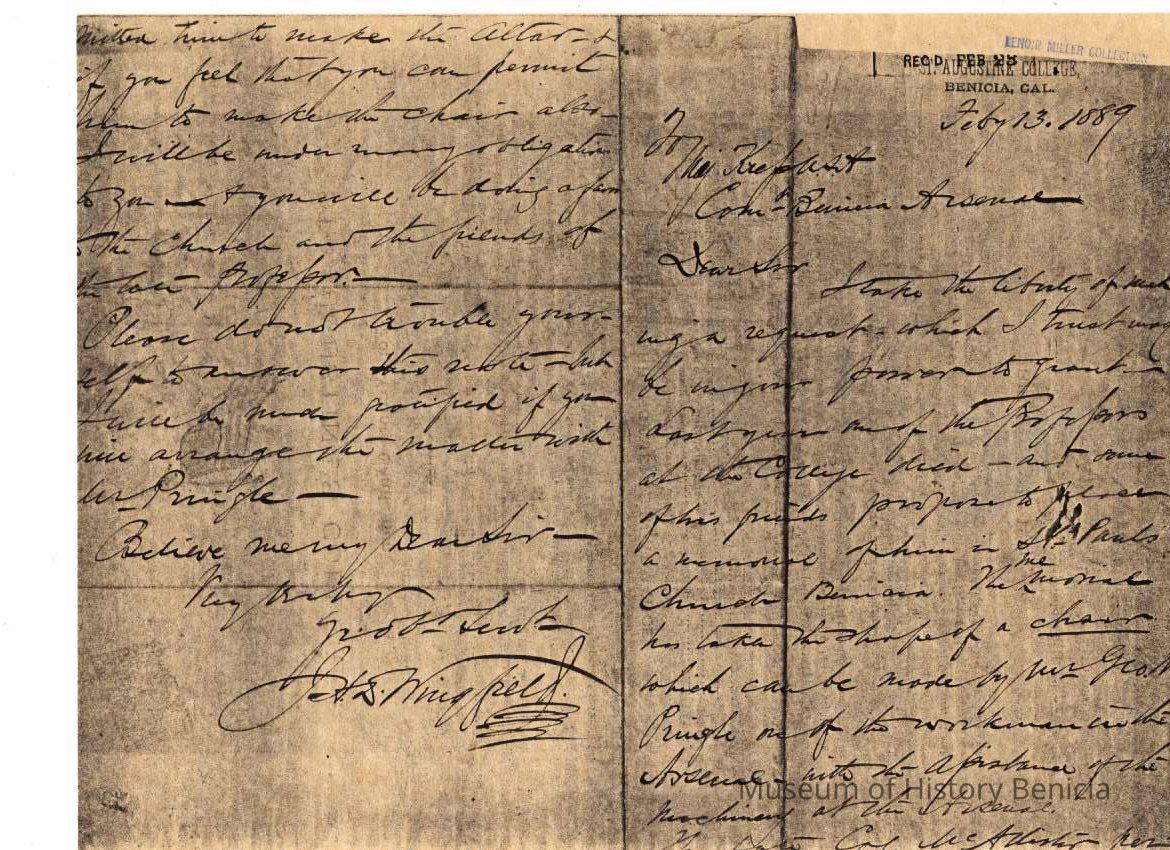 LENOIR MILLER COLLECTION
REC'D FEB 25
ST. AUGUSTINE COLLEGE,
BENICIA, CAL.
Feby 13. 1889
To
Maj.
Comd'g Benicia Arsenal
Dear Sir
I take the liberty of mak
ing a request - which I trust may
be in your power to grant -
Last year one of the Professors
at the College died - and some
of his friends propose to place
a memorial of him in St. Pauls
Church Benicia. The memorial
has taken the shape of a chair
which can be made by Mr Geo.
Pringle one of the workmen in the
Arsenal - with the assistance of the
machinery at the Arsenal.
The late Col. McAllister per
mitted him to make the Altar - &
if you feel that you can permit
him to make the chair also -
I will be under many obligations
to you - & you will be doing a favor
to the Church and the friends of
the late Professor. -
Please do not trouble your-
self to answer this note - but
I will be much gratified if you
will arrange the matter with
Mr Pringle -
Believe me my Dear Sir -
Very truly
Yr Obt Servt
J.H.D. Wingfield.
Museum of History Benicia